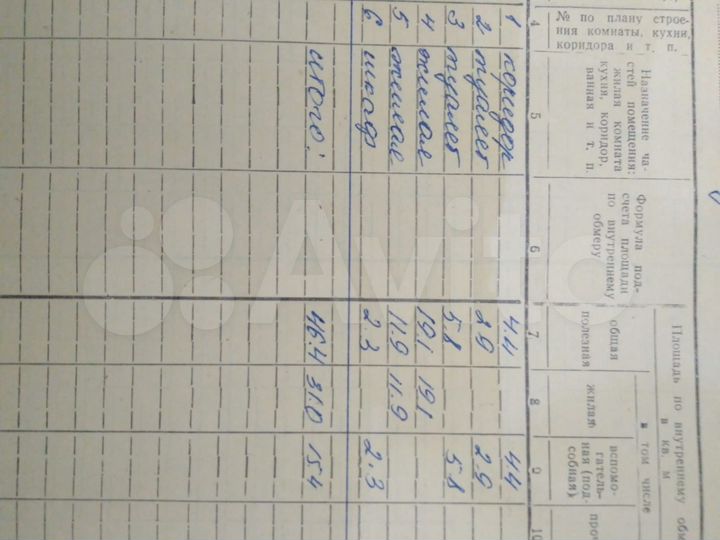 № по плану строе-
ния комнаты, кухни,
коридора и т. п.
Назначение ча-
стей помещения:
жилая комната
кухня, коридор,
ванная и т. п.
Формула под-
счета площади
по внутреннему
обмеру
Площадь по внутреннему
в кв. м
общая
полезная
в том числе
жилая
вспомо-
гатель-
ная (под-
собная)
проч
4 5 6 7 8 9 10
1 коридор 4.4 4.4
2 туалет 2.9 2.9
3 туалет 5.8 5.8
4 жилая 19,1 19,1
5 жилая 11.9 11.9
6 шкаф 2.3 2.3
итого: 46.4 31.0 15.4
Avito